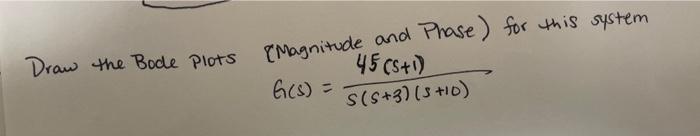 Draw the Bode Plots [Magnitude and Phase) for this system
G(s) = 45(s+1) / s(s+3)(s+10)